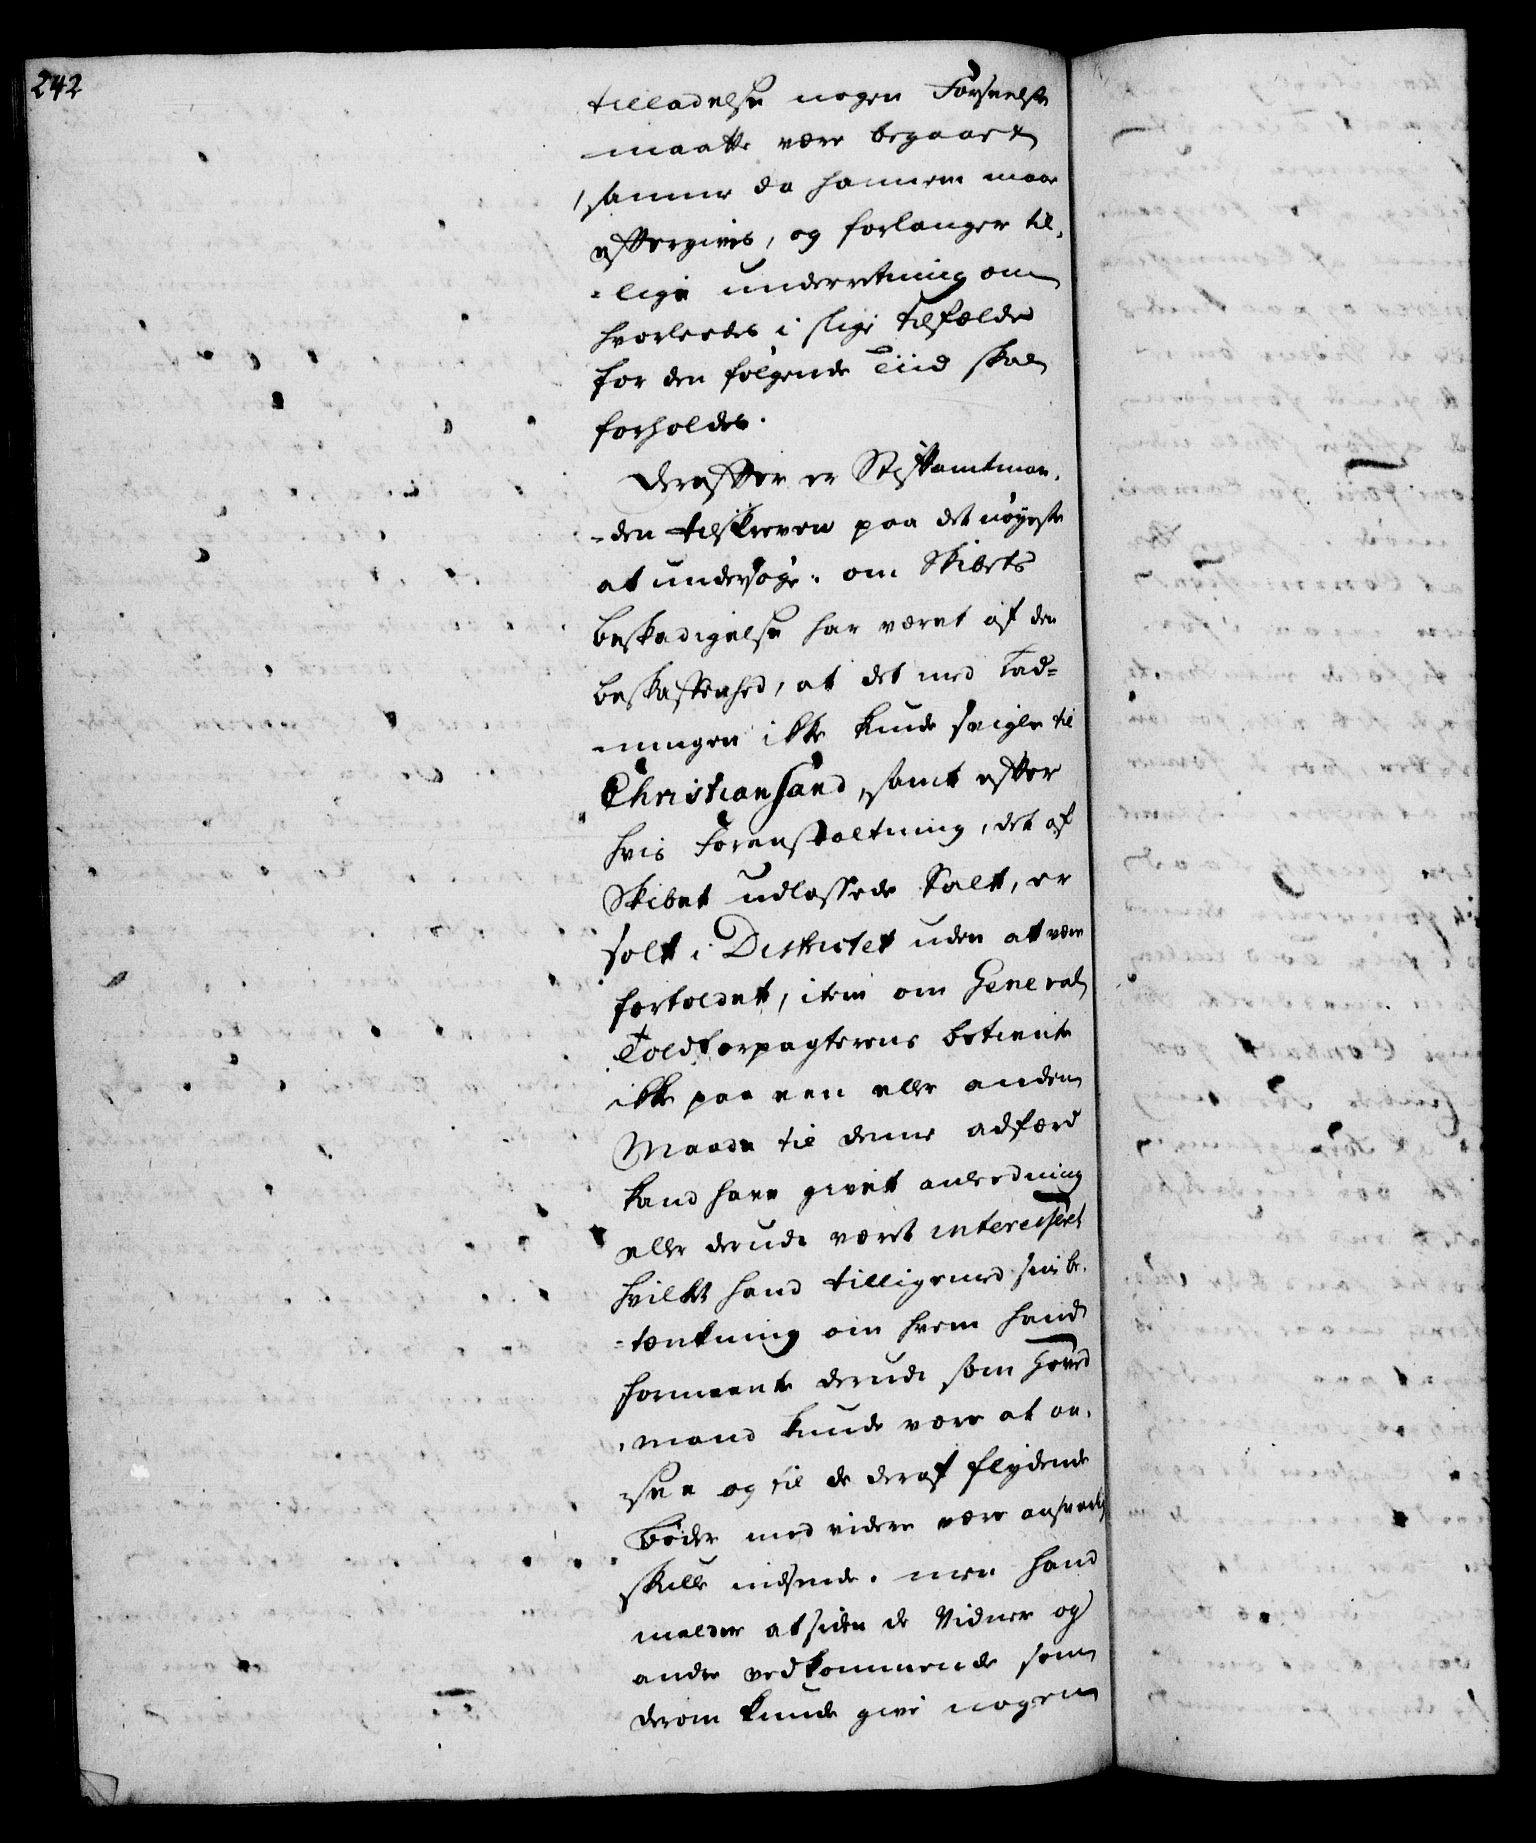 242
tilladelse nogen Forseelse
maatte være begaaet
samme da hannem maae
eftergives, og forlanger til-
-lige underretning om
hvorledes i slige tilfælde
for den følgende Tiid skal
forholdes.
Derefter er Stiftamtman-
-den tilskreven paa det nøyeste
at undersøge: om Skibets
beskadigelse har været af den
beskaffenhed, at det med Lad-
ningen ikke kunde seigle til
Christiansand, samt efter
hvis Foranstaltning, det af
Skibet udlossede Salt, er
solt i Districtet uden at være
fortoldet, item om General
Toldforpagterens betiente
ikke paa een eller anden
Maade til denne adfærd
kand have givet anledning
eller derudi været interesseret
hvilket hand tilligemed sin be-
-tænkning om hvem hand
formeente derudi som Hoved
-mand kunde være at an-
see og til de deraf flydende
bøder med videre være ansvarlig
skulle indsende. men hand
melder at siden de Vidner og
andre vedkommende som
derom kunde give nogen